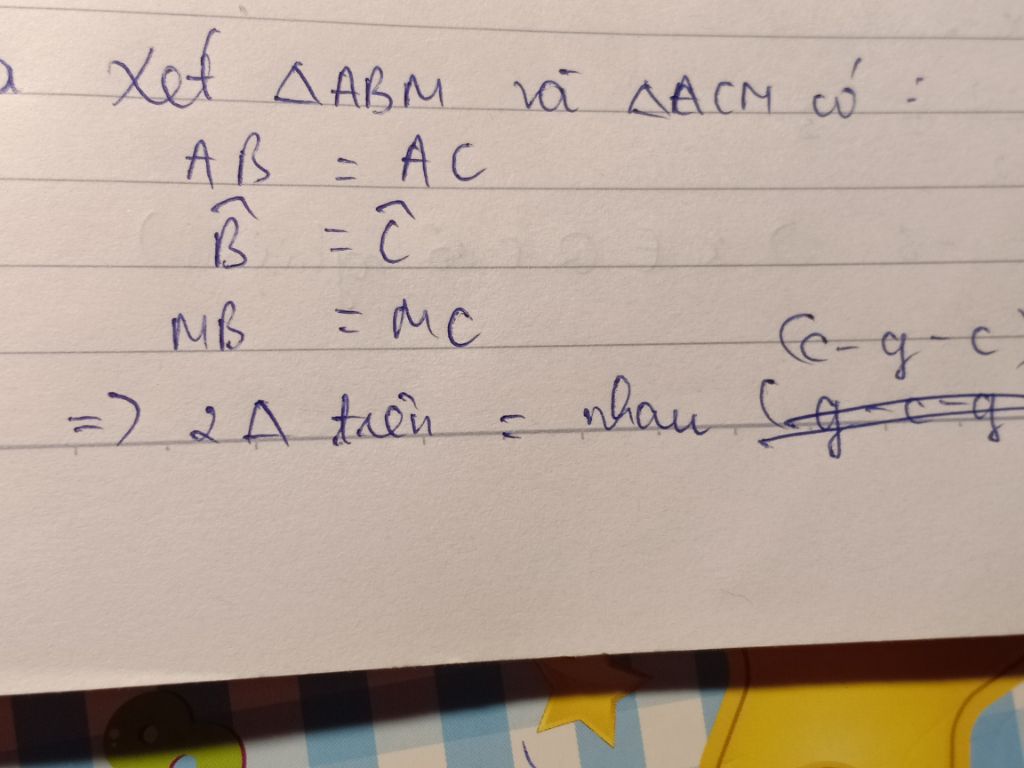 a Xét ΔABM và ΔACM có :
AB = AC
B̂ = Ĉ
MB = MC
(c - g - c)
=> 2Δ trên = nhau (g - c - g